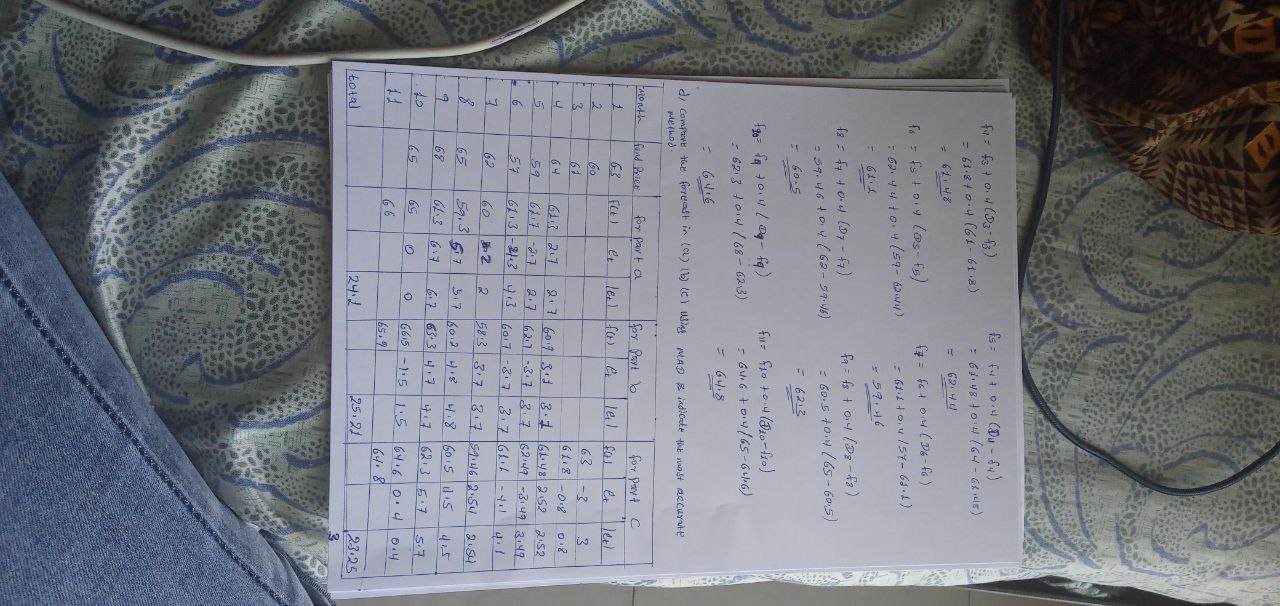 f4 = f3 + 0.4 (D3-f3)
= 61.8 + 0.4 (61 - 61.8)
= 61.48
f5 = f4 + 0.4 (D4 - f4)
= 61.48 + 0.4 (64 - 61.48)
= 62.44
f6 = f5 + 0.4 (D5-f5)
= 62.44 + 0.4 (59 - 62.44)
= 61.1
f7 = f6 + 0.4 (D6-f6)
= 61.1 + 0.4 (57 - 61.1)
= 59.46
f8 = f7 + 0.4 (D7 - f7)
= 59.46 + 0.4 (62 - 59.46)
= 60.5
f9 = f8 + 0.4 (D8 - f8)
= 60.5 + 0.4 (65 - 60.5)
= 62.3
f10 = f9 + 0.4 ( D9 - f9)
= 62.3 + 0.4 (68 - 62.3)
= 64.6
f11 = f10 + 0.4 (D10-f10)
= 64.6 + 0.4 (65 - 64.6)
= 64.8
d) compare the forecast in (a) (b) (c) using MAD & indicate the most accurate
method.
month fund price for part a for part b for part c
f(t) et |et| f(t) et |et| f(t) et |et|
1 63
2 60 63 -3 3
3 61 61.8 -0.8 0.8
4 64 61.3 2.7 2.7 60.9 3.1 3.1 61.48 2.52 2.52
5 59 61.7 -2.7 2.7 62.7 -3.7 3.7 62.49 -3.49 3.49
6 57 61.3 -4.3 4.3 60.7 -3.7 3.7 61.1 -4.1 4.1
7 62 60 2 2 58.3 3.7 3.7 59.46 2.54 2.54
8 65 59.3 5.7 5.7 60.2 4.8 4.8 60.5 4.5 4.5
9 68 61.3 6.7 6.7 63.3 4.7 4.7 62.3 5.7 5.7
10 65 65 0 0 66.5 -1.5 1.5 64.6 0.4 0.4
11 66 65.9 64.8
total 24.1 25.21 23.25
3